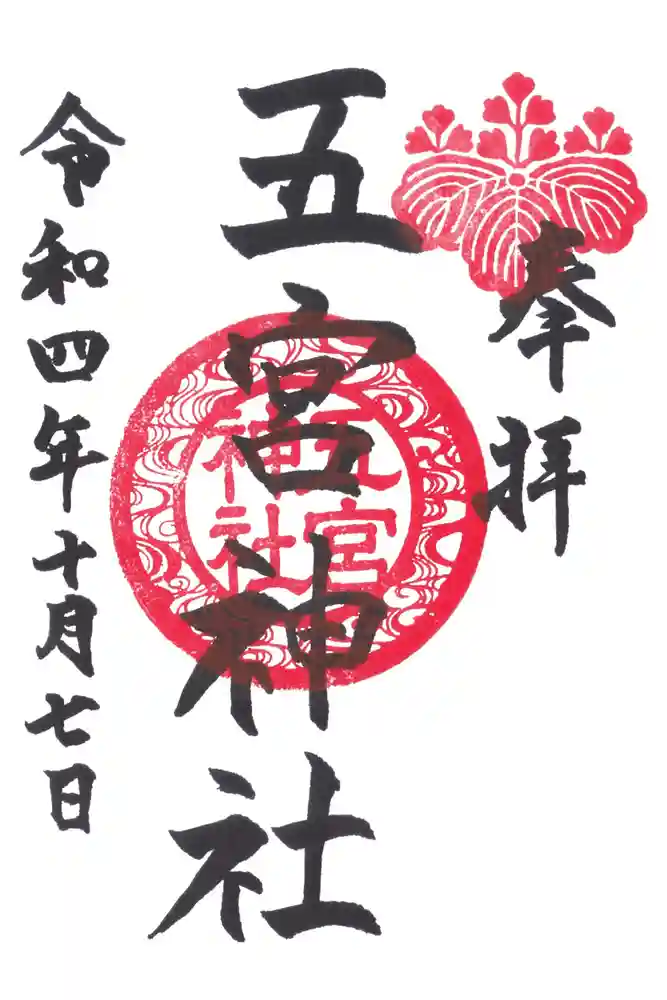 奉拝
五宮神社
五宮神社
令和四年十月七日